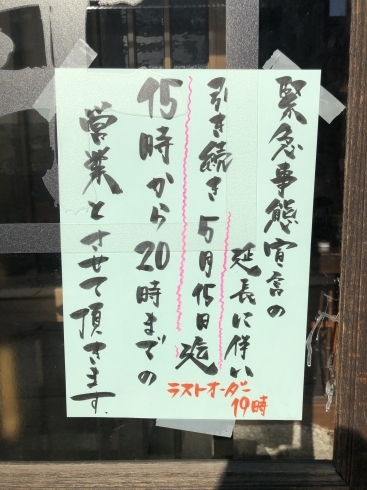 緊急事態宣言の
延長に伴い
引き続き5月15日迄
15時から20時までの
営業とさせて頂きます.
ラストオーダー
19時